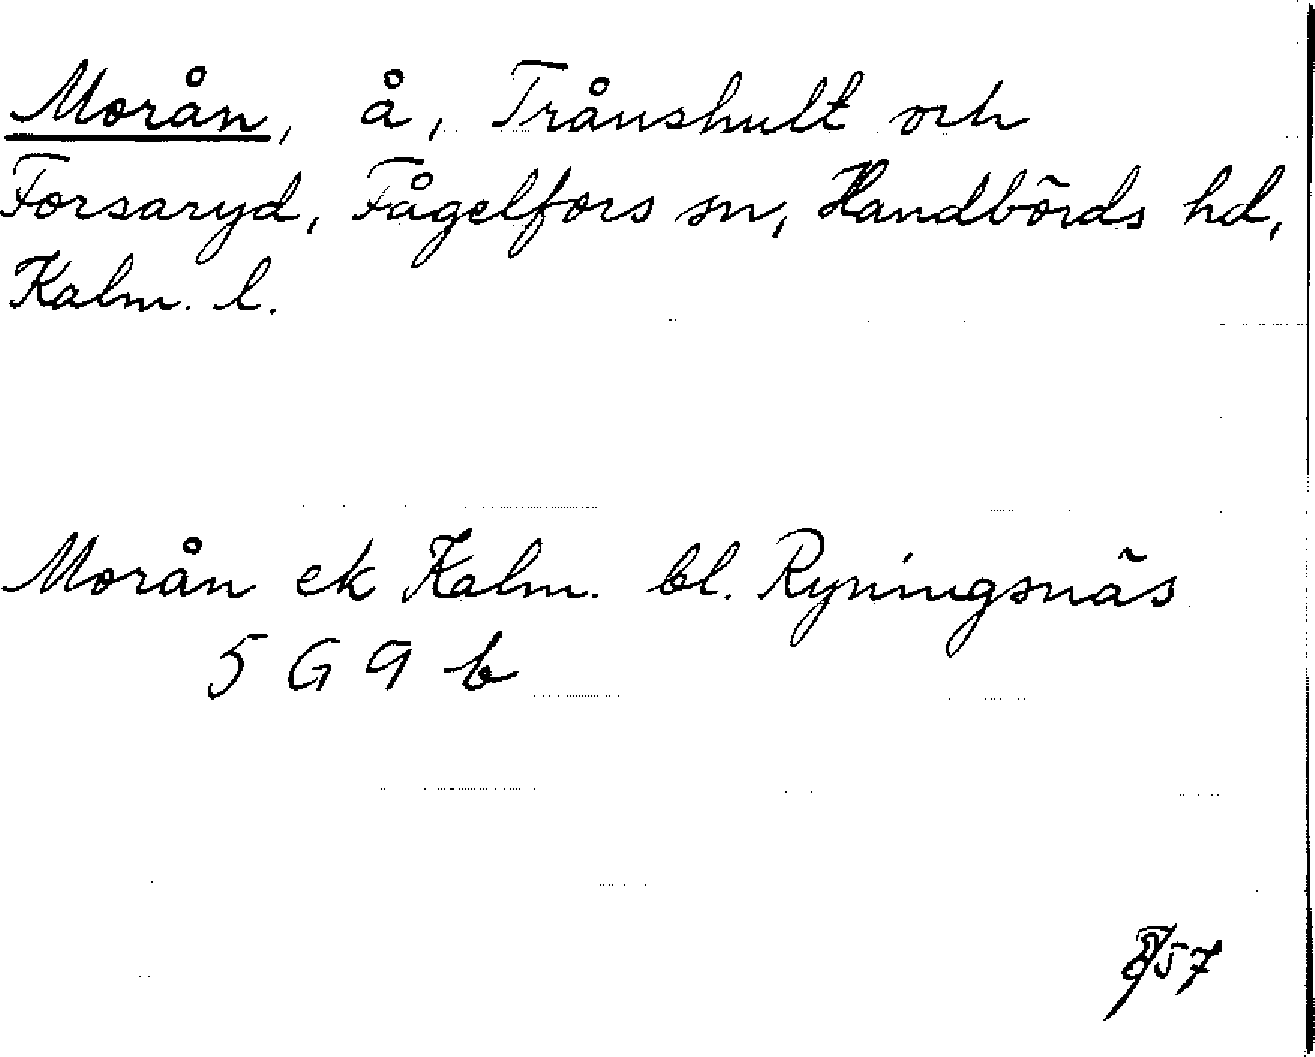 Morån, å, Trånshult och
Forsaryd, Fågelfors sn, Handbörds hd,
Kalm. l.
Morån ek Kalm. bl. Ryningsnäs
5 G 9 b
57